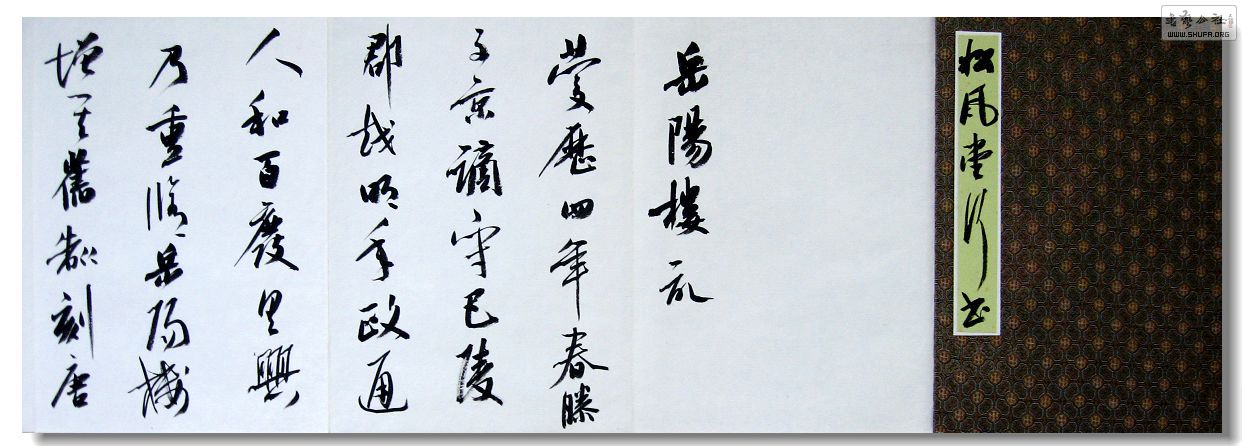 书艺公社
WWW.SHUFA.ORG
松风堂行书
岳陽樓记
慶歷四年春滕
子京謫守巴陵
郡越明年政通
人和百廢具興
乃重脩岳陽樓
增其舊制刻唐